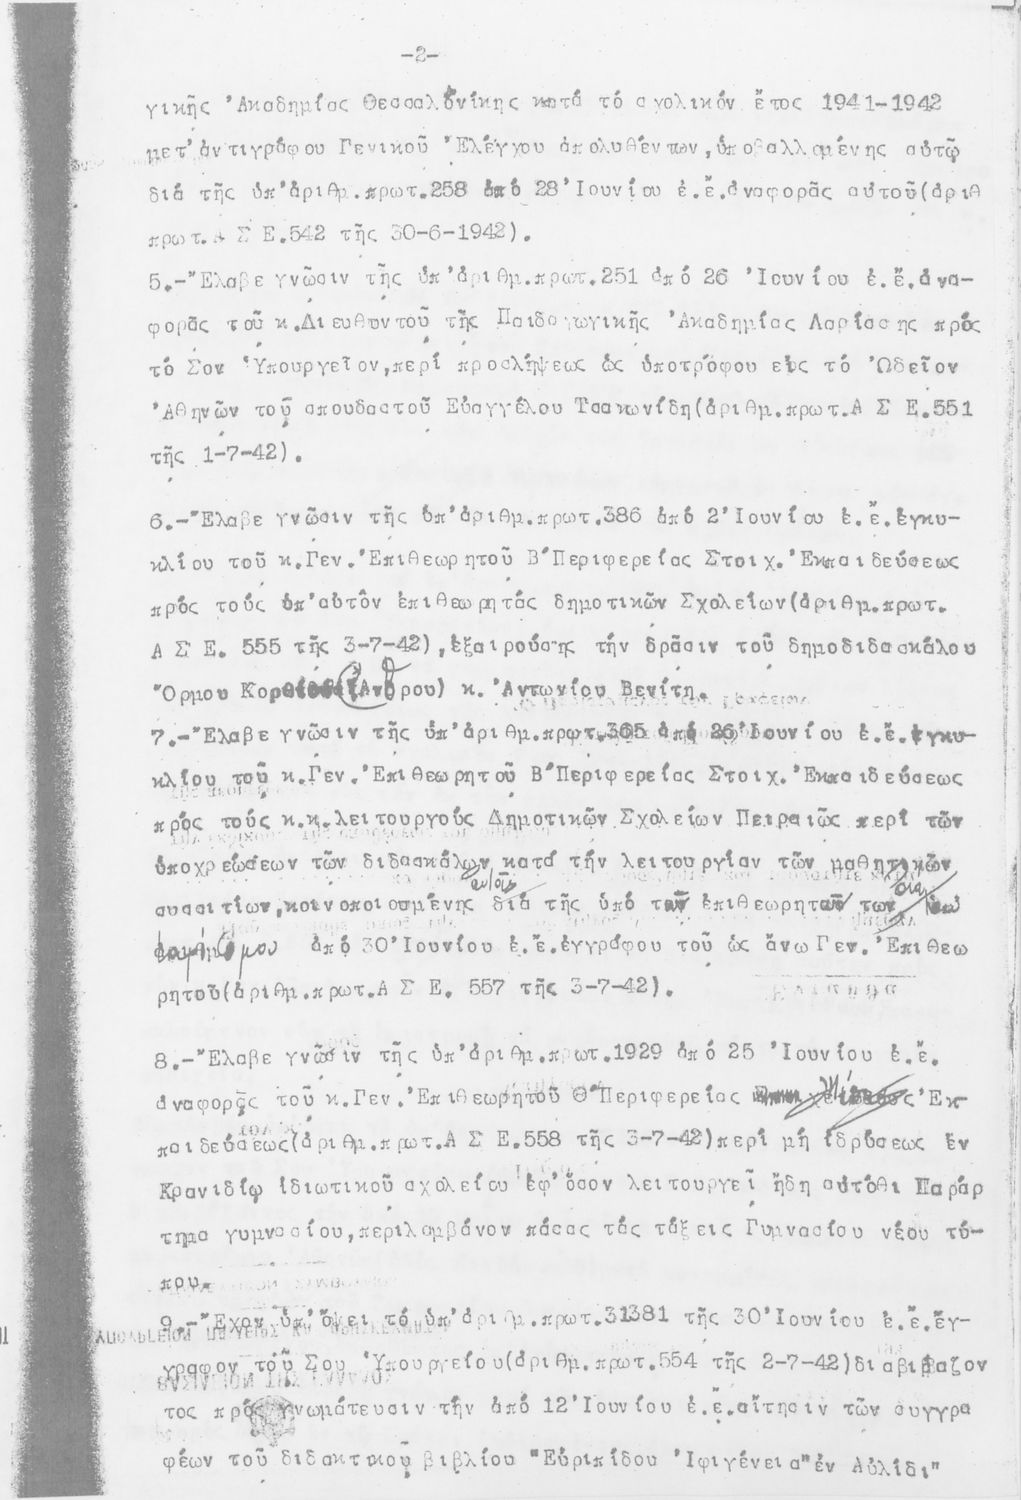 -2-
γικῆς Ἀκαδημίας Θεσσαλονίκης κατά τό σχολικόν ἔτος 1941-1942
μετ'ἀντιγράφου Γενικοῦ Ἐλέγχου ἀπολυθέντων,ὑποβαλλομένης αὐτῷ
διά τῆς ὑπ'ἀριθμ.πρωτ.258 ἀπό 28 Ἰουνίου ἐ.ἔ.ἀναφορᾶς αὐτοῦ(ἀριθ
πρωτ.Α Σ Ε.542 τῆς 30-6-1942).
5.-Ἔλαβε γνῶσιν τῆς ὑπ'ἀριθμ.πρωτ.251 ἀπό 26 Ἰουνίου ἐ.ἔ.ἀνα-
φορᾶς τοῦ κ.Διευθυντοῦ τῆς Παιδαγωγικῆς Ἀκαδημίας Λαρίσσης πρός
τό Σον Ὑπουργεῖον,περί προσλήψεως ὡς ὑποτρόφου εἰς τό Ὠδεῖον
Ἀθηνῶν τοῦ σπουδαστοῦ Εὐαγγέλου Τσακωνίδη(ἀριθμ.πρωτ.Α Σ Ε.551
τῆς 1-7-42).
6.-Ἔλαβε γνῶσιν τῆς ὑπ'ἀριθμ.πρωτ.386 ἀπό 2 Ἰουνίου ἐ.ἔ.ἐγκυ-
κλίου τοῦ κ.Γεν.Ἐπιθεωρητοῦ Β'Περιφερείας Στοιχ.Ἐκπαιδεύσεως
πρός τούς ὑπ'αὐτόν ἐπιθεωρητάς δημοτικῶν Σχολείων(ἀριθμ.πρωτ.
Α Σ Ε. 555 τῆς 3-7-42),ἐξαιρούσης τήν δρᾶσιν τοῦ δημοδιδασκάλου
Ὅρμου (Ἄνδρου) κ. Ἀντωνίου Βενίτη.
7.-Ἔλαβε γνῶσιν τῆς ὑπ'ἀριθμ.πρωτ.365 ἀπό 26 Ἰουνίου ἐ.ἔ.ἐγκυ-
κλίου τοῦ κ.Γεν.Ἐπιθεωρητοῦ Β'Περιφερείας Στοιχ.Ἐκπαιδεύσεως
πρός τούς κ.κ.λειτουργούς Δημοτικῶν Σχολείων Πειραιῶς περί τῶν
ὑποχρεώσεων τῶν διδασκάλων κατά τήν λειτουργίαν τῶν μαθητικῶν
συσσιτίων,κοινοποιουμένης διά τῆς ὑπό τοῦ ἐπιθεωρητοῦ των
ἀπό 30 Ἰουνίου ἐ.ἔ.ἐγγράφου τοῦ ὡς ἄνω Γεν.Ἐπιθεω
ρητοῦ(ἀριθμ.πρωτ.Α Σ Ε. 557 τῆς 3-7-42).
8.-Ἔλαβε γνῶσιν τῆς ὑπ'ἀριθμ.πρωτ.1929 ἀπό 25 Ἰουνίου ἐ.ἔ.
ἀναφορᾶς τοῦ κ.Γεν.Ἐπιθεωρητοῦ Θ'Περιφερείας Μέσης Ἐκ-
παιδεύσεως(ἀριθμ.πρωτ.Α Σ Ε.558 τῆς 3-7-42)περί μή ἱδρύσεως ἐν
Κρανιδίῳ ἰδιωτικοῦ σχολείου ἐφ'ὅσον λειτουργεῖ ἤδη αὐτόθι Παράρ
τημα γυμνασίου,περιλαμβάνον πάσας τάς τάξεις Γυμνασίου νέου τύ-
που.
9.-Ἔχον ὑπ'ὄψει τό ὑπ'ἀριθμ.πρωτ.31381 τῆς 30 Ἰουνίου ἐ.ἔ.ἔγ-
γραφον τοῦ Σου Ὑπουργείου(ἀριθμ.πρωτ.554 τῆς 2-7-42)διαβιβαζον
τος πρός γνωμάτευσιν τήν ἀπό 12 Ἰουνίου ἐ.ἔ.αἴτησιν τῶν συγγρα
φέων τοῦ διδακτικοῦ βιβλίου "Εὐριπίδου Ἰφιγένεια"ἐν Αὐλίδι"